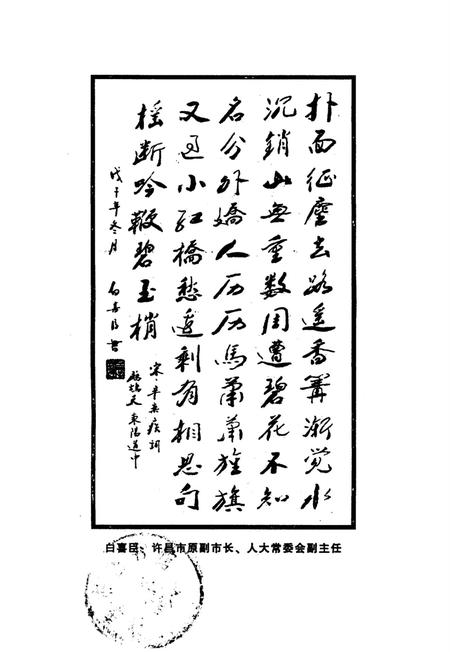 扑面征塵去路遥香篝渐觉水
沉銷山無重数周遭碧花不知
名分外嬌人历历馬蕭蕭旌旗
又过小红橋愁边剩有相思句
摇断吟鞭碧玉梢
宋·辛弃疾词
鹧鸪天 東陽道中
戊子年冬月 白喜臣书
白喜臣：许昌市原副市长、人大常委会副主任